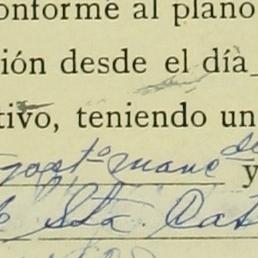 onforme al plano
ión desde el día
tivo, teniendo un
y
Sta. Cat